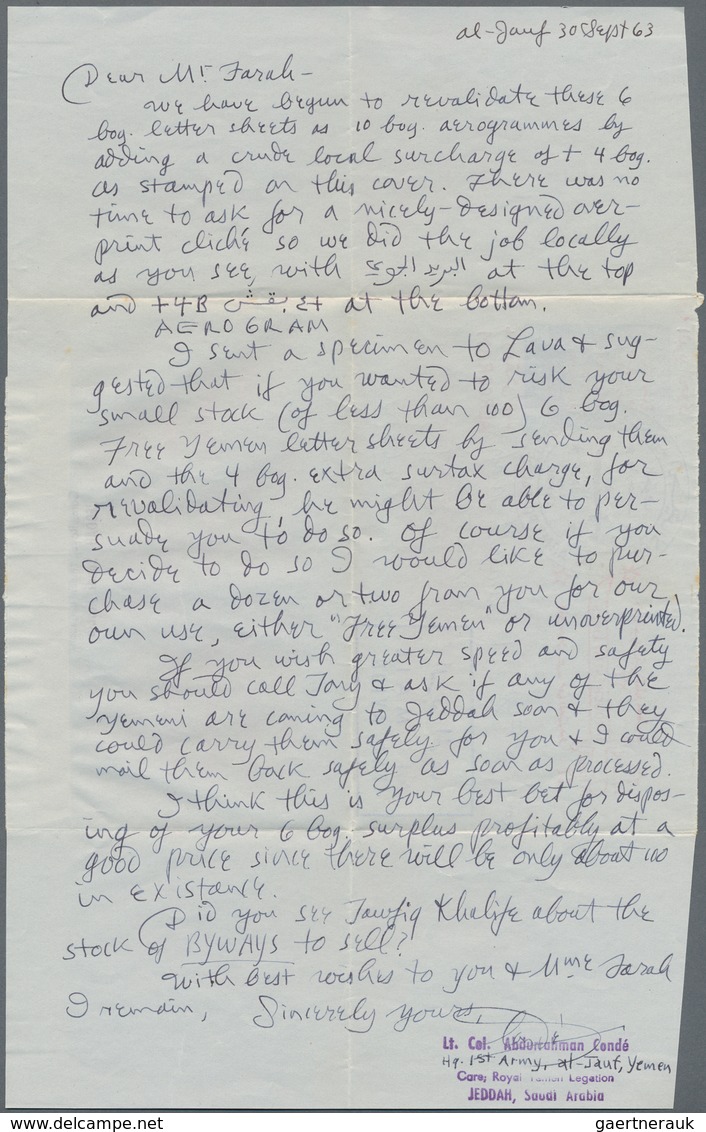 al-Jauf 30 Sept 63
Dear Mr. Farah -
We have begun to revalidate these 6
bog. letter sheets as 10 bog. aerogrammes by
adding a crude local surcharge of + 4 bog.
as stamped on this cover. There was no
time to ask for a nicely-designed over-
print cliché so we did the job locally
as you see, with البريد الجوي at the top
and +4B بقش ٤+ at the bottom.
AEROGRAM
I sent a specimen to Lava & sug-
gested that if you wanted to risk your
small stock (of less than 100) 6 bog.
Free Yemen letter sheets by sending them
and the 4 bog. extra surtax charge, for
revalidating, he might be able to per-
suade you to do so. Of course if you
decide to do so I would like to pur-
chase a dozen or two from you for our
own use, either "Free Yemen" or unoverprinted.
If you wish greater speed and safety
you should call Tony & ask if any of the
Yemeni are coming to Jeddah soon & they
could carry them safely for you & I could
mail them back safely as soon as processed.
I think this is your best bet for dispos-
ing of your 6 bog. surplus profitably at a
good price since there will be only about 100
in existance.
Did you see Tawfiq Khalife about the
stock of BYWAYS to sell?
With best wishes to you & Mme Farah
I remain, Sincerely yours,
Lt. Col. Abdurrahman Condé
Hq. 1st Army, al-Jauf, Yemen
Care, Royal Yemen Legation
JEDDAH, Saudi Arabia
gaertnerauk